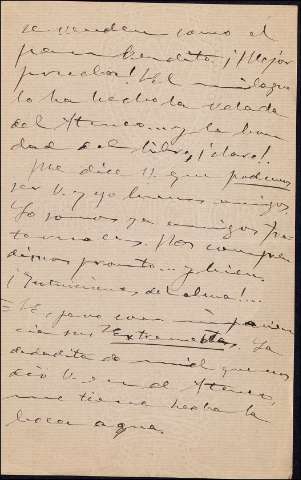 se venden como el
pan bendito ¡Mejor
que ellos! El milagro
lo ha hecho la velada
del Ateneo y la bon
dad del libro, ¡claro!.
Me dice V. que podemos
ser V. y yo buenos amigos.
Lo somos ya amigos fra
ternales. Nos compren
dimos pronto... y bien
¡Intuiciones del alma!...
= Espero con impacien
cia sus Extremeñas. La
dedadita de miel que nos
dió V. en el Ateneo,
me tiene hecha la
boca agua.